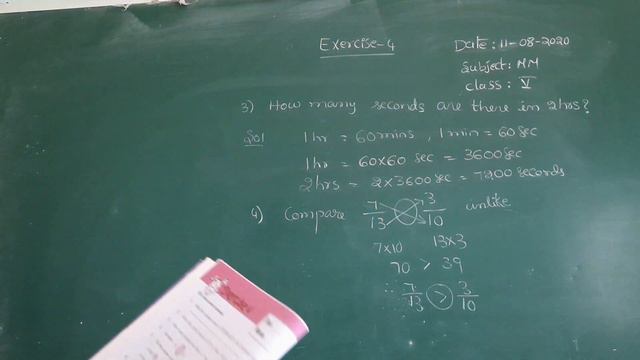 Exercise-4
Date: 11-08-2020
Subject: MM
class: V
3) How many seconds are there in 2 hrs?
Sol 1 hr = 60 mins, 1 min = 60 sec
1 hr = 60×60 sec = 3600 sec
2 hrs = 2×3600 sec = 7200 seconds
4) Compare 7/13 3/10 unlike
7×10 13×3
70 > 39
∴ 7/13 > 3/10